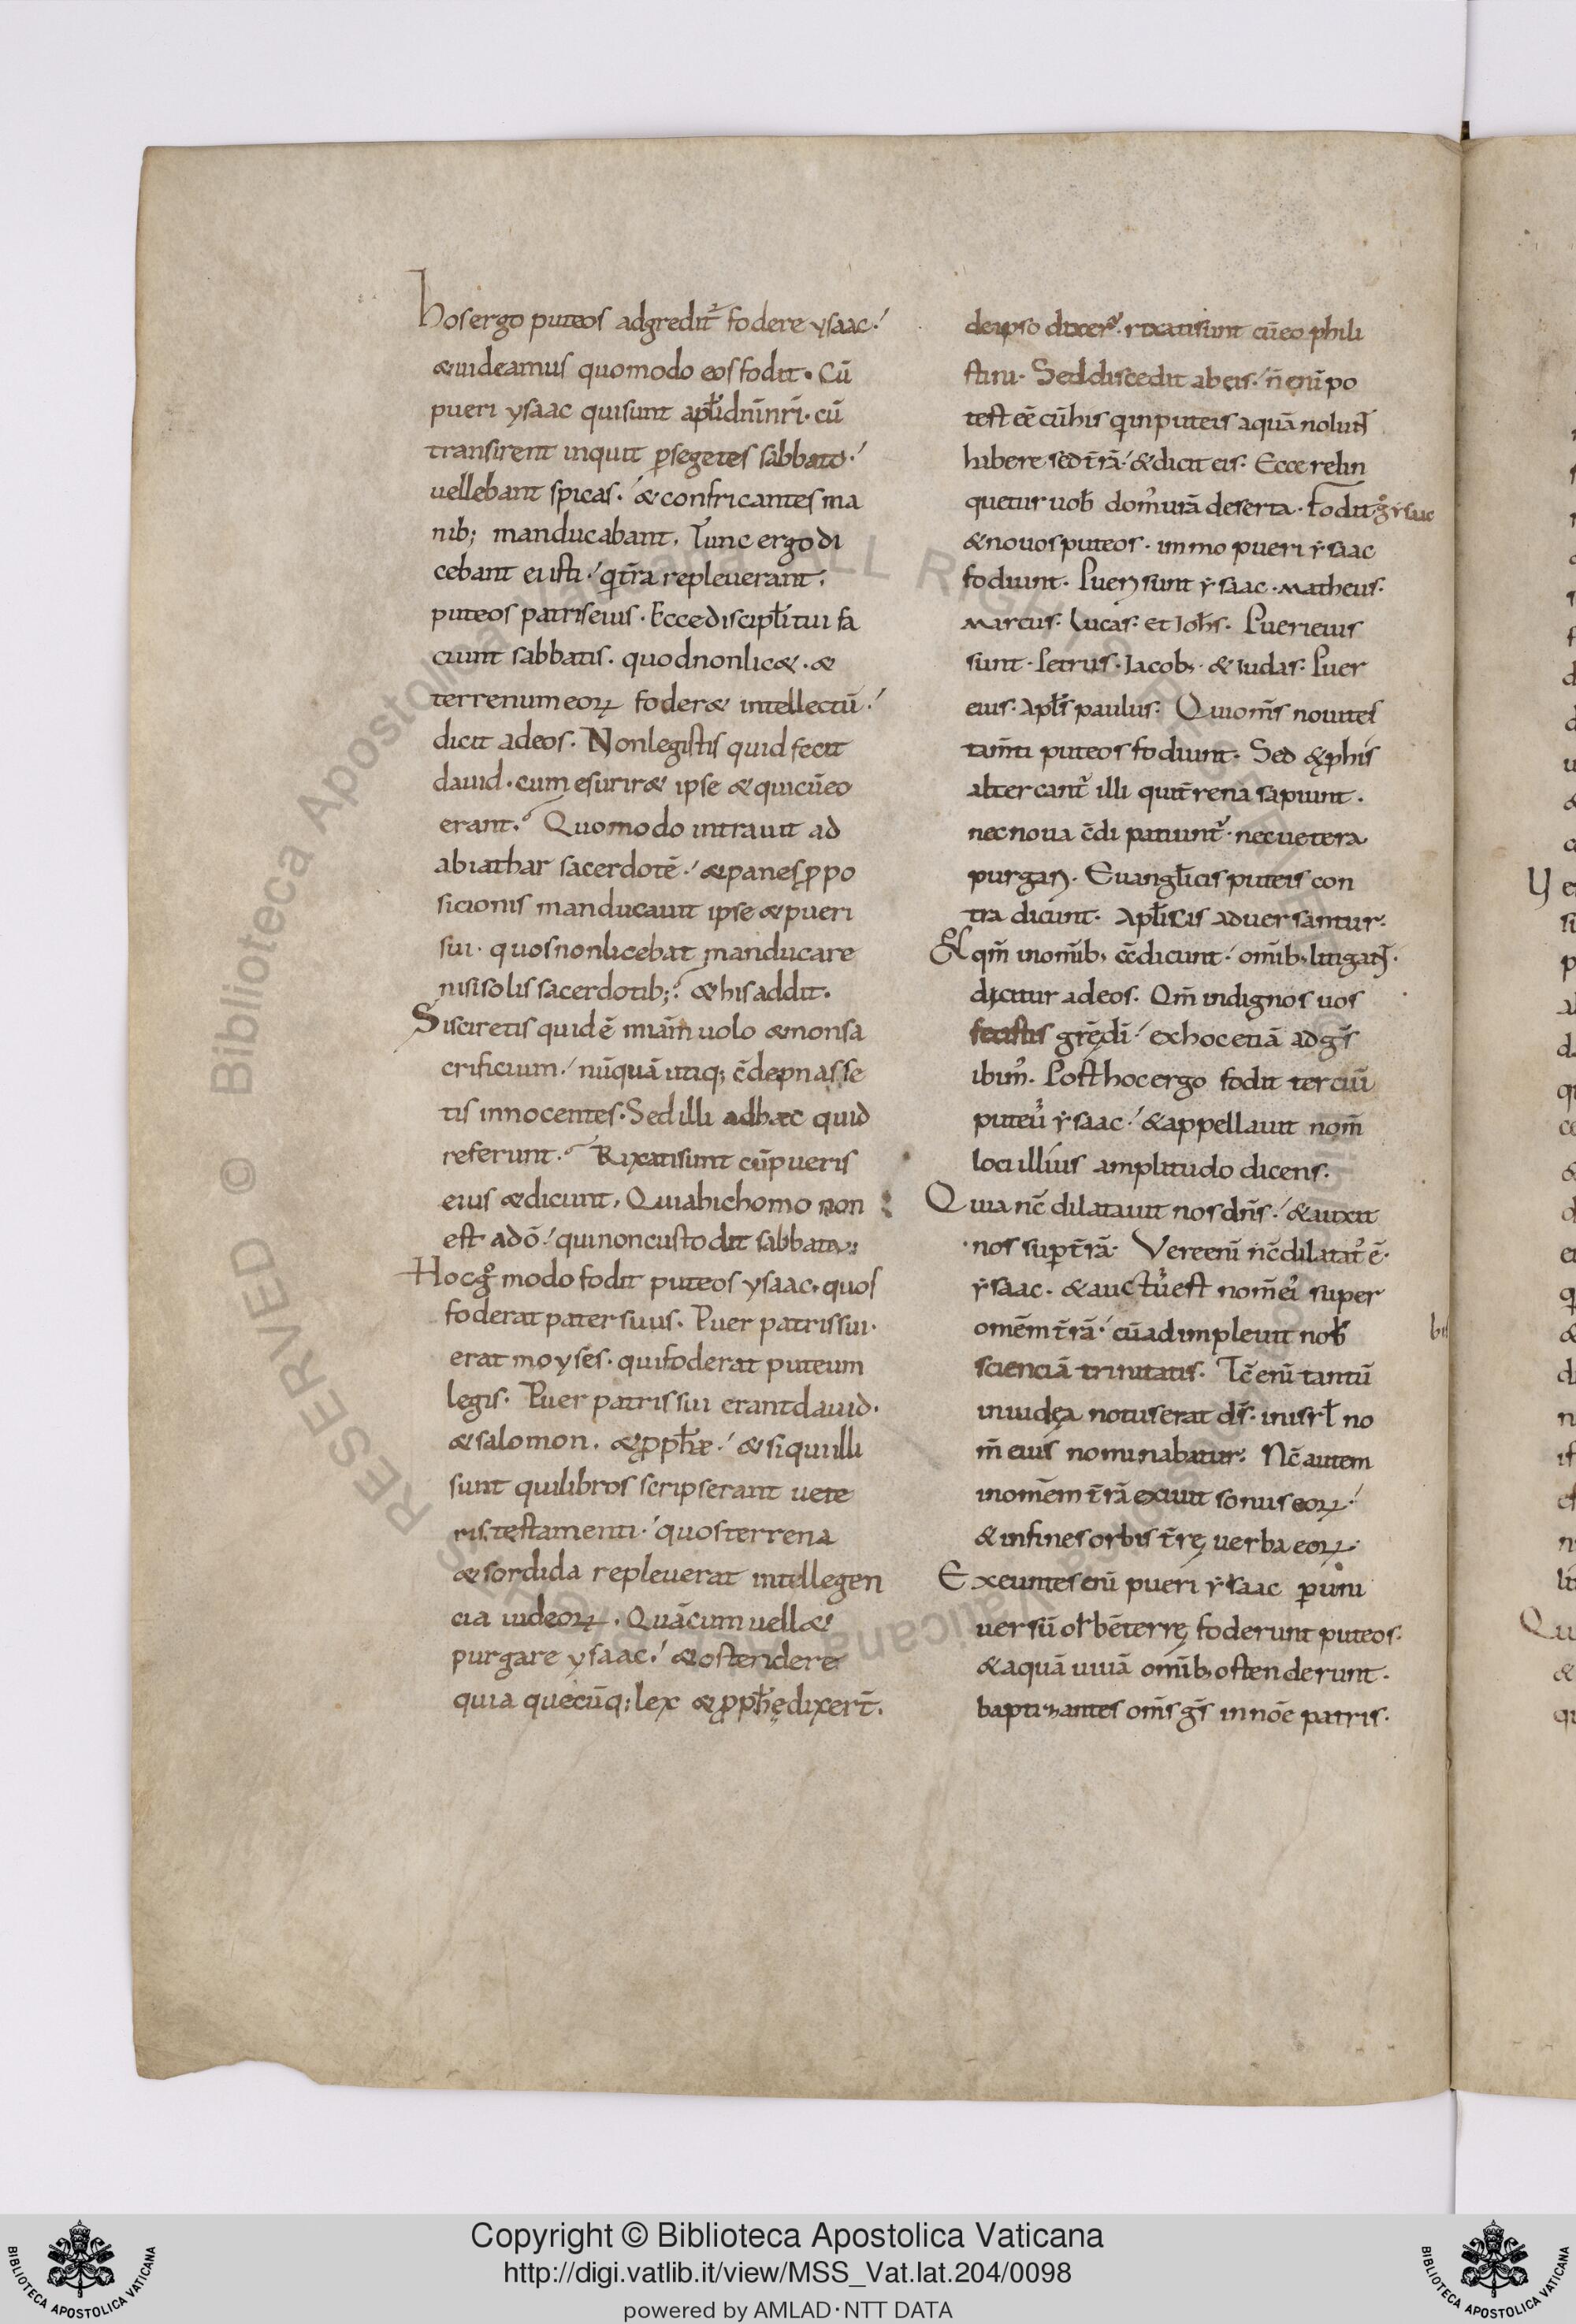 Hos ergo puteos adgredit᷑ fodere ysaac·
& uideamus quomodo eos fodit· Cū
pueri ysaac qui sunt apłi dnī nr̄i· cū
transirent inquit ꝑ segetes sabbato·
uellebant spicas· & confricantes ma
nib; manducabant· Tunc ergo di
cebant ei isti· q̄ t̄ra repleuerant·
puteos patris eius· Ecce discipłi tui fa
ciunt sabbatis· quod non lic&· &
terrenum eoꝝ foder& intellectū·
dicit ad eos· Non legistis quid fecit
dauid· cum esurir& ipse & qui cū eo
erant· Quomodo intrauit ad
abiathar sacerdotē· & panes ꝓpo
sicionis manducauit ipse & pueri
sui· quos non licebat manducare
nisi solis sacerdotib;· & his addit·
Si sciretis quid ē miām uolo & non sa
crificium· nūquā utiq; c̄depnasse
tis innocentes· Sed illi ad hæc quid
referunt· Rixati sunt cū pueris
eius & dicunt· Quia hic homo non
est a dō· qui non custodit sabbatū·
Hoc gͦ modo fodit puteos ysaac· quos
foderat pater suus· Puer patris sui·
erat moyses· qui foderat puteum
legis· Puer patris sui erant dauid·
& salomon· & ꝓph̄æ· & si qui illi
sunt qui libros scripserant uete
ris testamenti· quos terrena
& sordida repleuerat intellegen
cia iudeoꝝ· Quā cum uell&
purgare ysaac· & ostendere
quia quecūq; lex & ꝓph̄ę dixer̄t·
de ipso dixer̄· rixati sunt cū eo phili
stini· Sed discedit ab eis· n̄ enī po
test eē cū his q̇ in puteis aquā nolunt
habere sed t̄rā· & dicit eis· Ecce relin
quetur uob̄ dom᷒ urā deserta· Fodit gͦ ysaac
& nouos puteos· immo pueri ysaac
fodiunt· Pueri sunt ysaac· Matheus·
Marcus· Lucas· et Ioh̄s· Pueri eius
sunt· Petrus· Iacob;· & Iudas· Puer
eius· Apłs paulus· Qui om̄s noui tes
tam̄ti puteos fodiunt· Sed & ꝓ his
altercant᷑ illi qui t̄rena sapiunt·
nec noua c̄di patiunt᷑· nec uetera
purgari· Euangłicis puteis con
tra dicunt· Apłicis aduersantur·
Et qm̄ in om̄ib; c̄tdicunt· om̄ib; litigant·
dicitur ad eos· Qm̄ indignos uos
fecistis gr̄ę dī· ex hoc etiā ad gs̄
ibim᷒· Post hoc ergo fodit terciū
puteū ysaac· & appellauit nom̄
loci illius amplitudo dicens·
Quia nc̄ dilatauit nos dn̄s· & auxit
nos suꝑ t̄rā· Vere enī nc̄ dilatat᷒ ē·
ysaac· & auctū est nom̄ ei᷒ super
omēm t̄rā· cū adimpleuit nob̄
scienciā trinitatis· Tc̄ enī tantū
in iudęa notus erat ds̄· in isrł no
m̄ eius nominabatur· Nc̄ autem
in omēm t̄rā exiuit sonus eoꝝ·
& in fines orbis t̄rę uerba eoꝝ·
Exeuntes enī pueri ysaac ꝑ uni
uersū orbē terrę foderunt puteos·
& aquā uiuā om̄ib; ostenderunt·
baptizantes om̄s gs̄ in nōe patris·
RESERVED © Biblioteca Apostolica Vaticana ALL RIGHTS
Copyright © Biblioteca Apostolica Vaticana
http://digi.vatlib.it/view/MSS_Vat.lat.204/0098
powered by AMLAD·NTT DATA
BIBLIOTECA APOSTOLICA VATICANA
BIBLIOTECA APOSTOLICA VATICANA